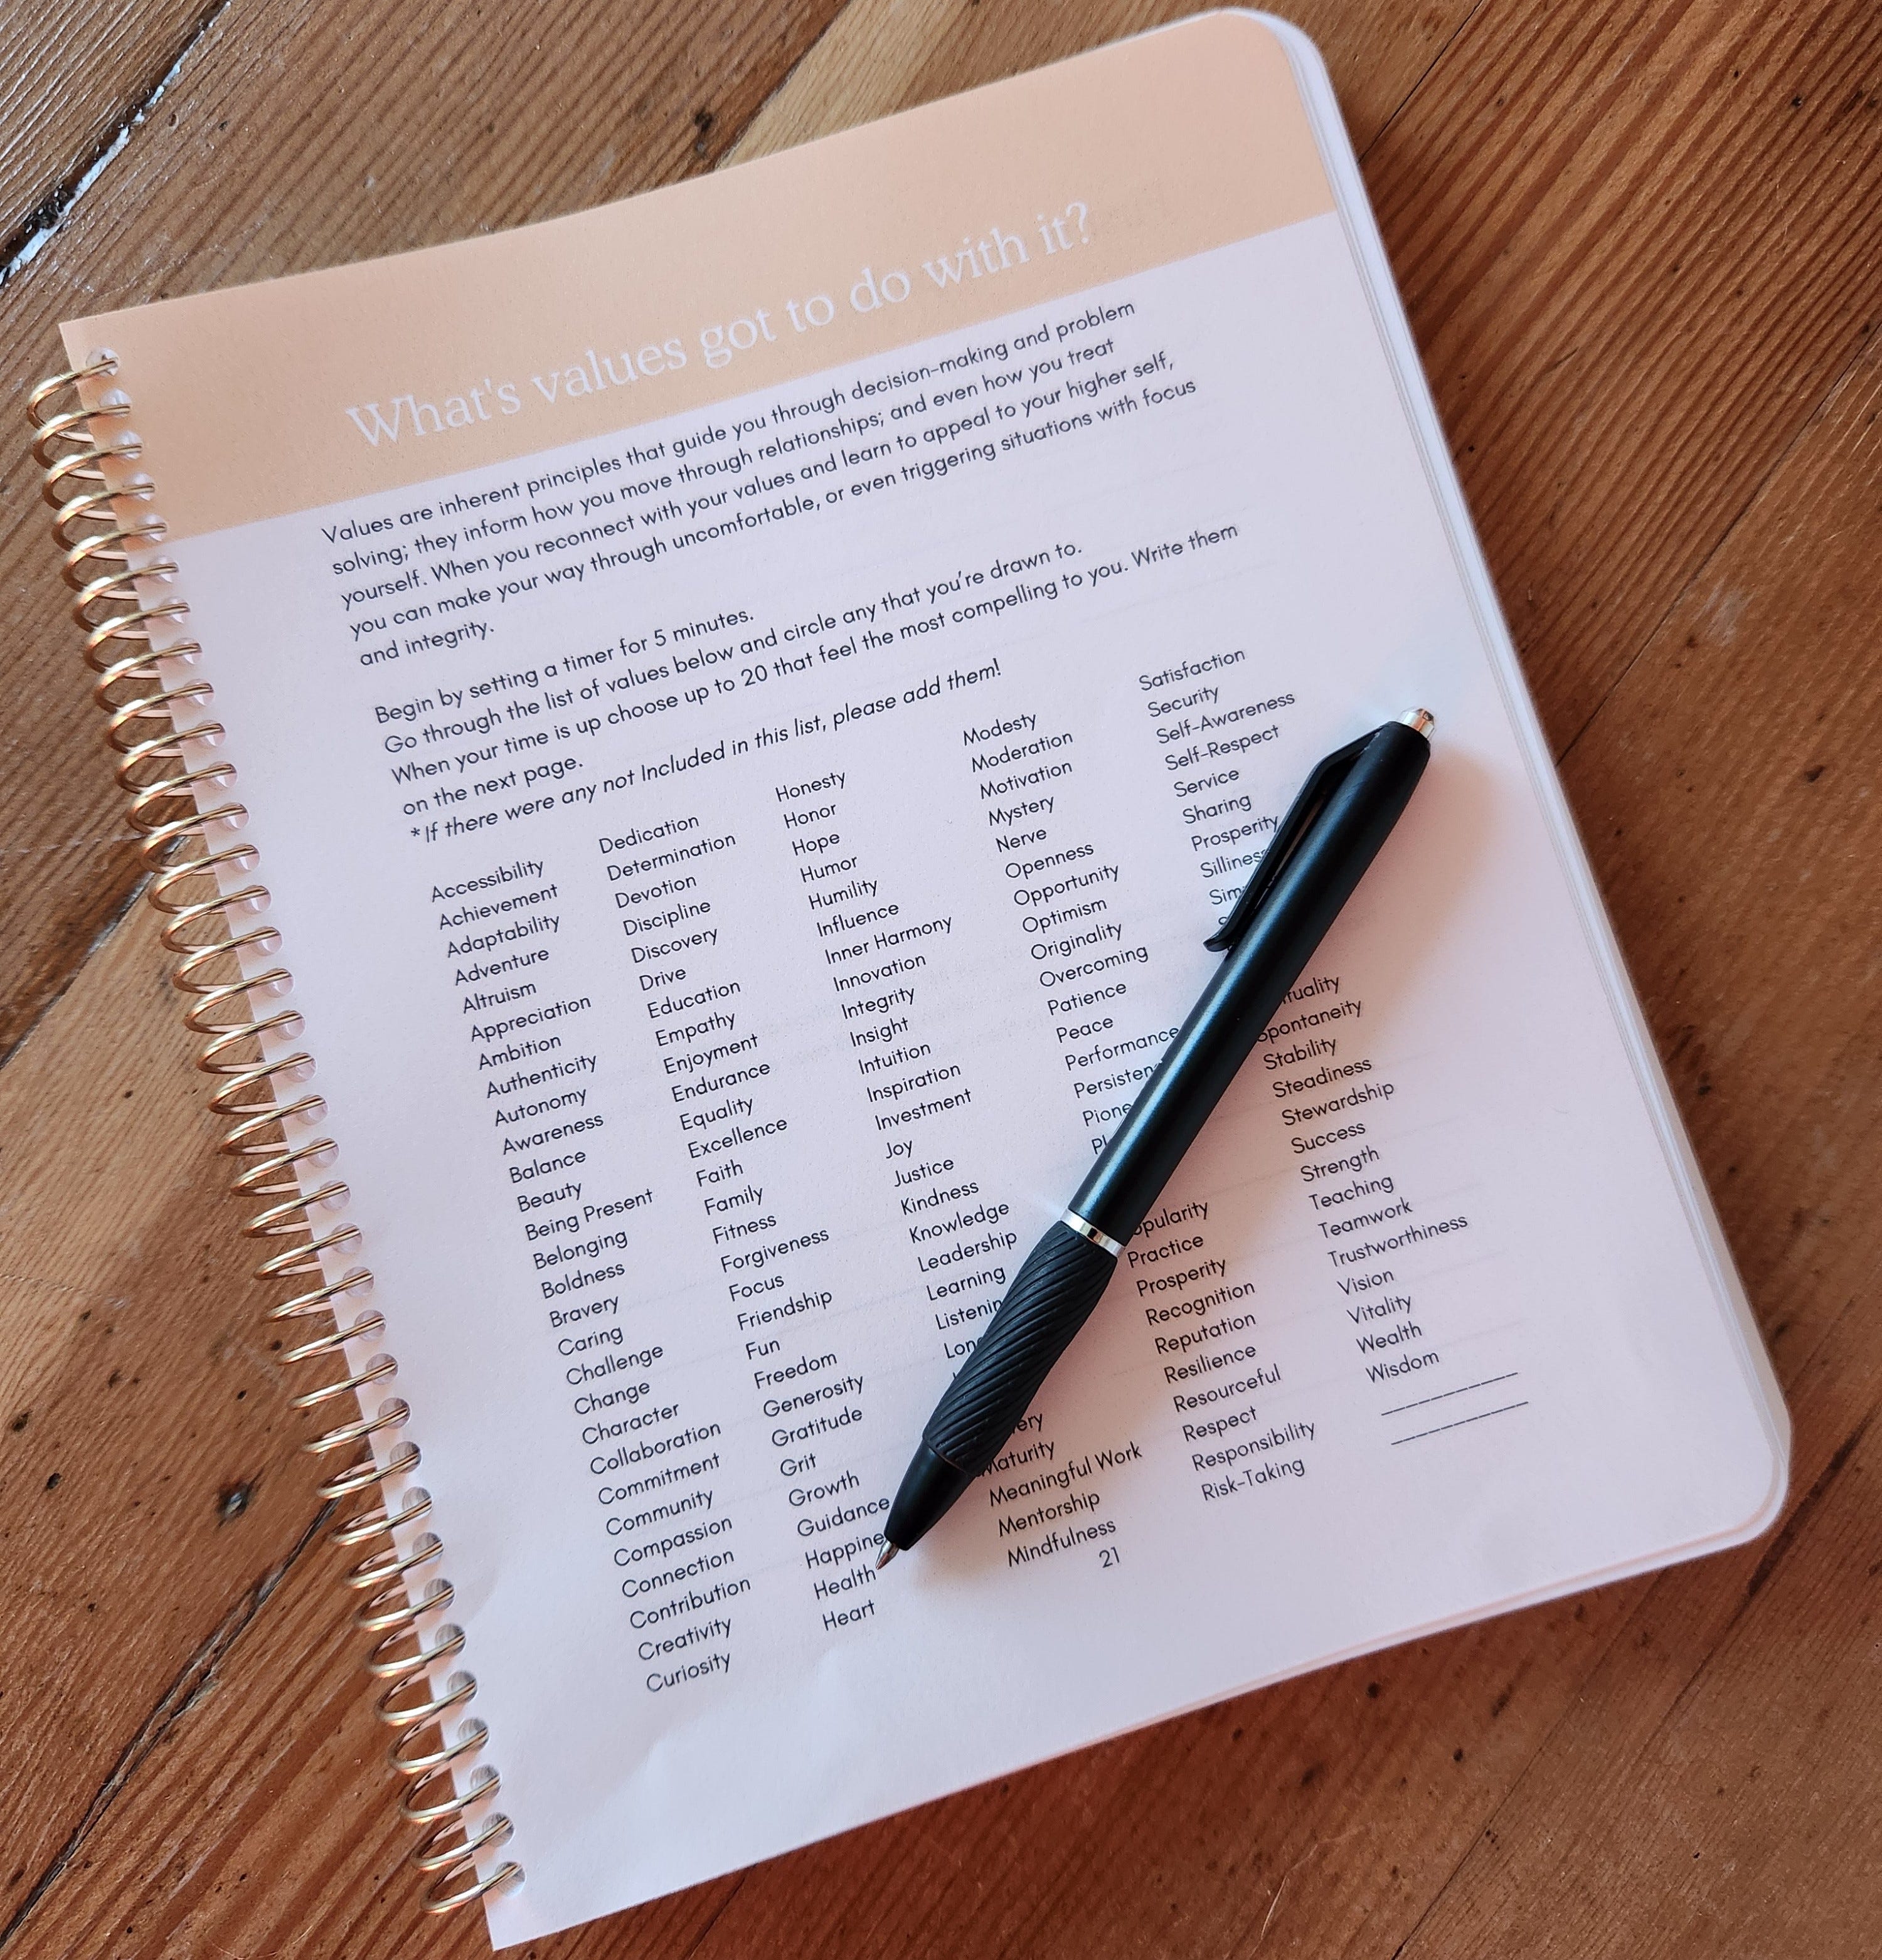 What's values got to do with it?
Values are inherent principles that guide you through decision-making and problem
solving; they inform how you move through relationships; and even how you treat
yourself. When you reconnect with your values and learn to appeal to your higher self,
you can make your way through uncomfortable, or even triggering situations with focus
and integrity.
Begin by setting a timer for 5 minutes.
Go through the list of values below and circle any that you're drawn to.
When your time is up choose up to 20 that feel the most compelling to you. Write them
on the next page.
*If there were any not Included in this list, please add them!
Accessibility
Achievement
Adaptability
Adventure
Altruism
Appreciation
Ambition
Authenticity
Autonomy
Awareness
Balance
Beauty
Being Present
Belonging
Boldness
Bravery
Caring
Challenge
Change
Character
Collaboration
Commitment
Community
Compassion
Connection
Contribution
Creativity
Curiosity
Dedication
Determination
Devotion
Discipline
Discovery
Drive
Education
Empathy
Enjoyment
Endurance
Equality
Excellence
Faith
Family
Fitness
Forgiveness
Focus
Friendship
Fun
Freedom
Generosity
Gratitude
Grit
Growth
Guidance
Health
Heart
Honesty
Honor
Hope
Humor
Humility
Influence
Inner Harmony
Innovation
Integrity
Insight
Intuition
Inspiration
Investment
Joy
Justice
Kindness
Knowledge
Leadership
Learning
Maturity
Meaningful Work
Mentorship
Mindfulness
Modesty
Moderation
Motivation
Mystery
Nerve
Openness
Opportunity
Optimism
Originality
Overcoming
Patience
Peace
Performance
Practice
Prosperity
Recognition
Reputation
Resilience
Resourceful
Respect
Responsibility
Risk-Taking
Satisfaction
Security
Self-Awareness
Self-Respect
Service
Sharing
Prosperity
Stability
Steadiness
Stewardship
Success
Strength
Teaching
Teamwork
Trustworthiness
Vision
Vitality
Wealth
Wisdom
21